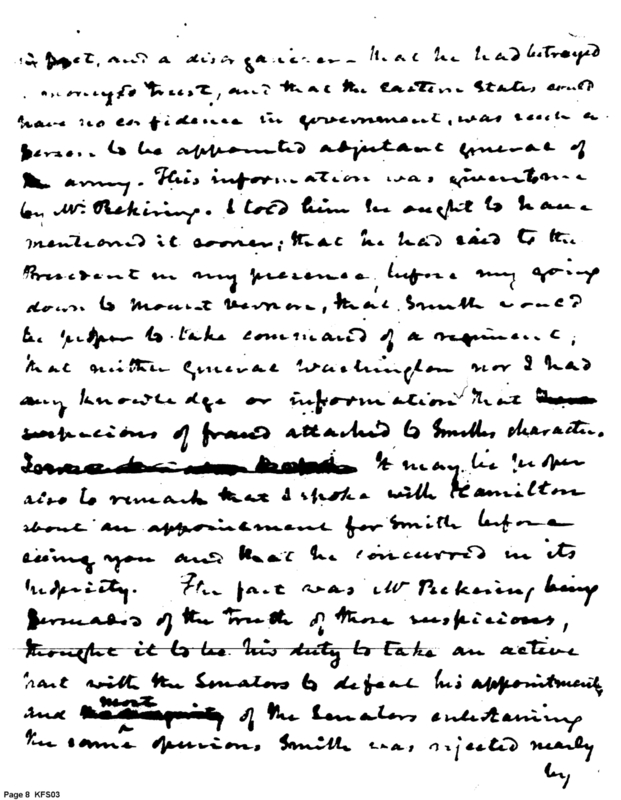 in fact, and a disorganizer — that he had betrayed
money to trust, and that the eastern States could
have no confidence in government, was such a
person to be appointed adjutant general of
army. This information was given to me
by Mr Pickering. I told him he ought to have
mentioned it sooner; that he had said to the
President in my presence, before my going
down to Mount Vernon, that Smith would
be proper to take command of a regiment;
that neither General Washington nor I had
any knowledge or information that
suspicions of fraud attached to Smiths character.
It may be proper
also to remark that I spoke with Hamilton
about an appointment for Smith before
seeing you and that he concurred in its
propriety. The fact was Mr Pickering being
persuaded of the truth of those suspicions,
thought it to be his duty to take an active
part with the Senators to defeat his appointment,
and most of the Senators entertaining
the same opinions Smith was rejected nearly
by
Page 8 KFS03